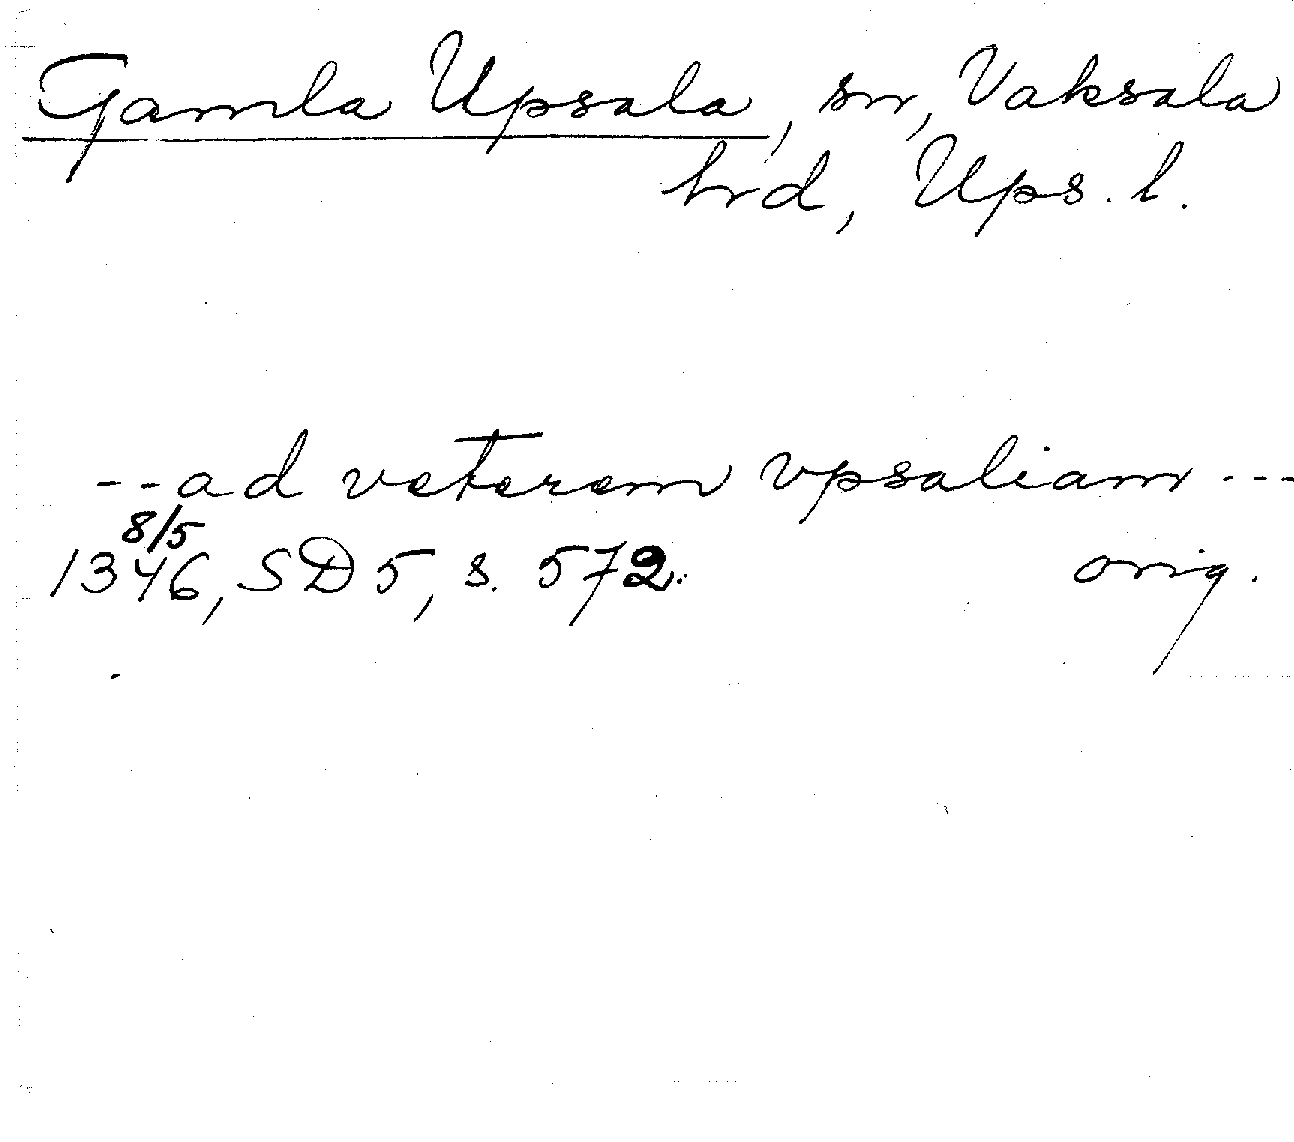 Gamla Upsala, sn, Vaksala
hrd, Ups. l.
--ad veterem vpsaliam ---
8/5
1346, SD 5, s. 572. orig.